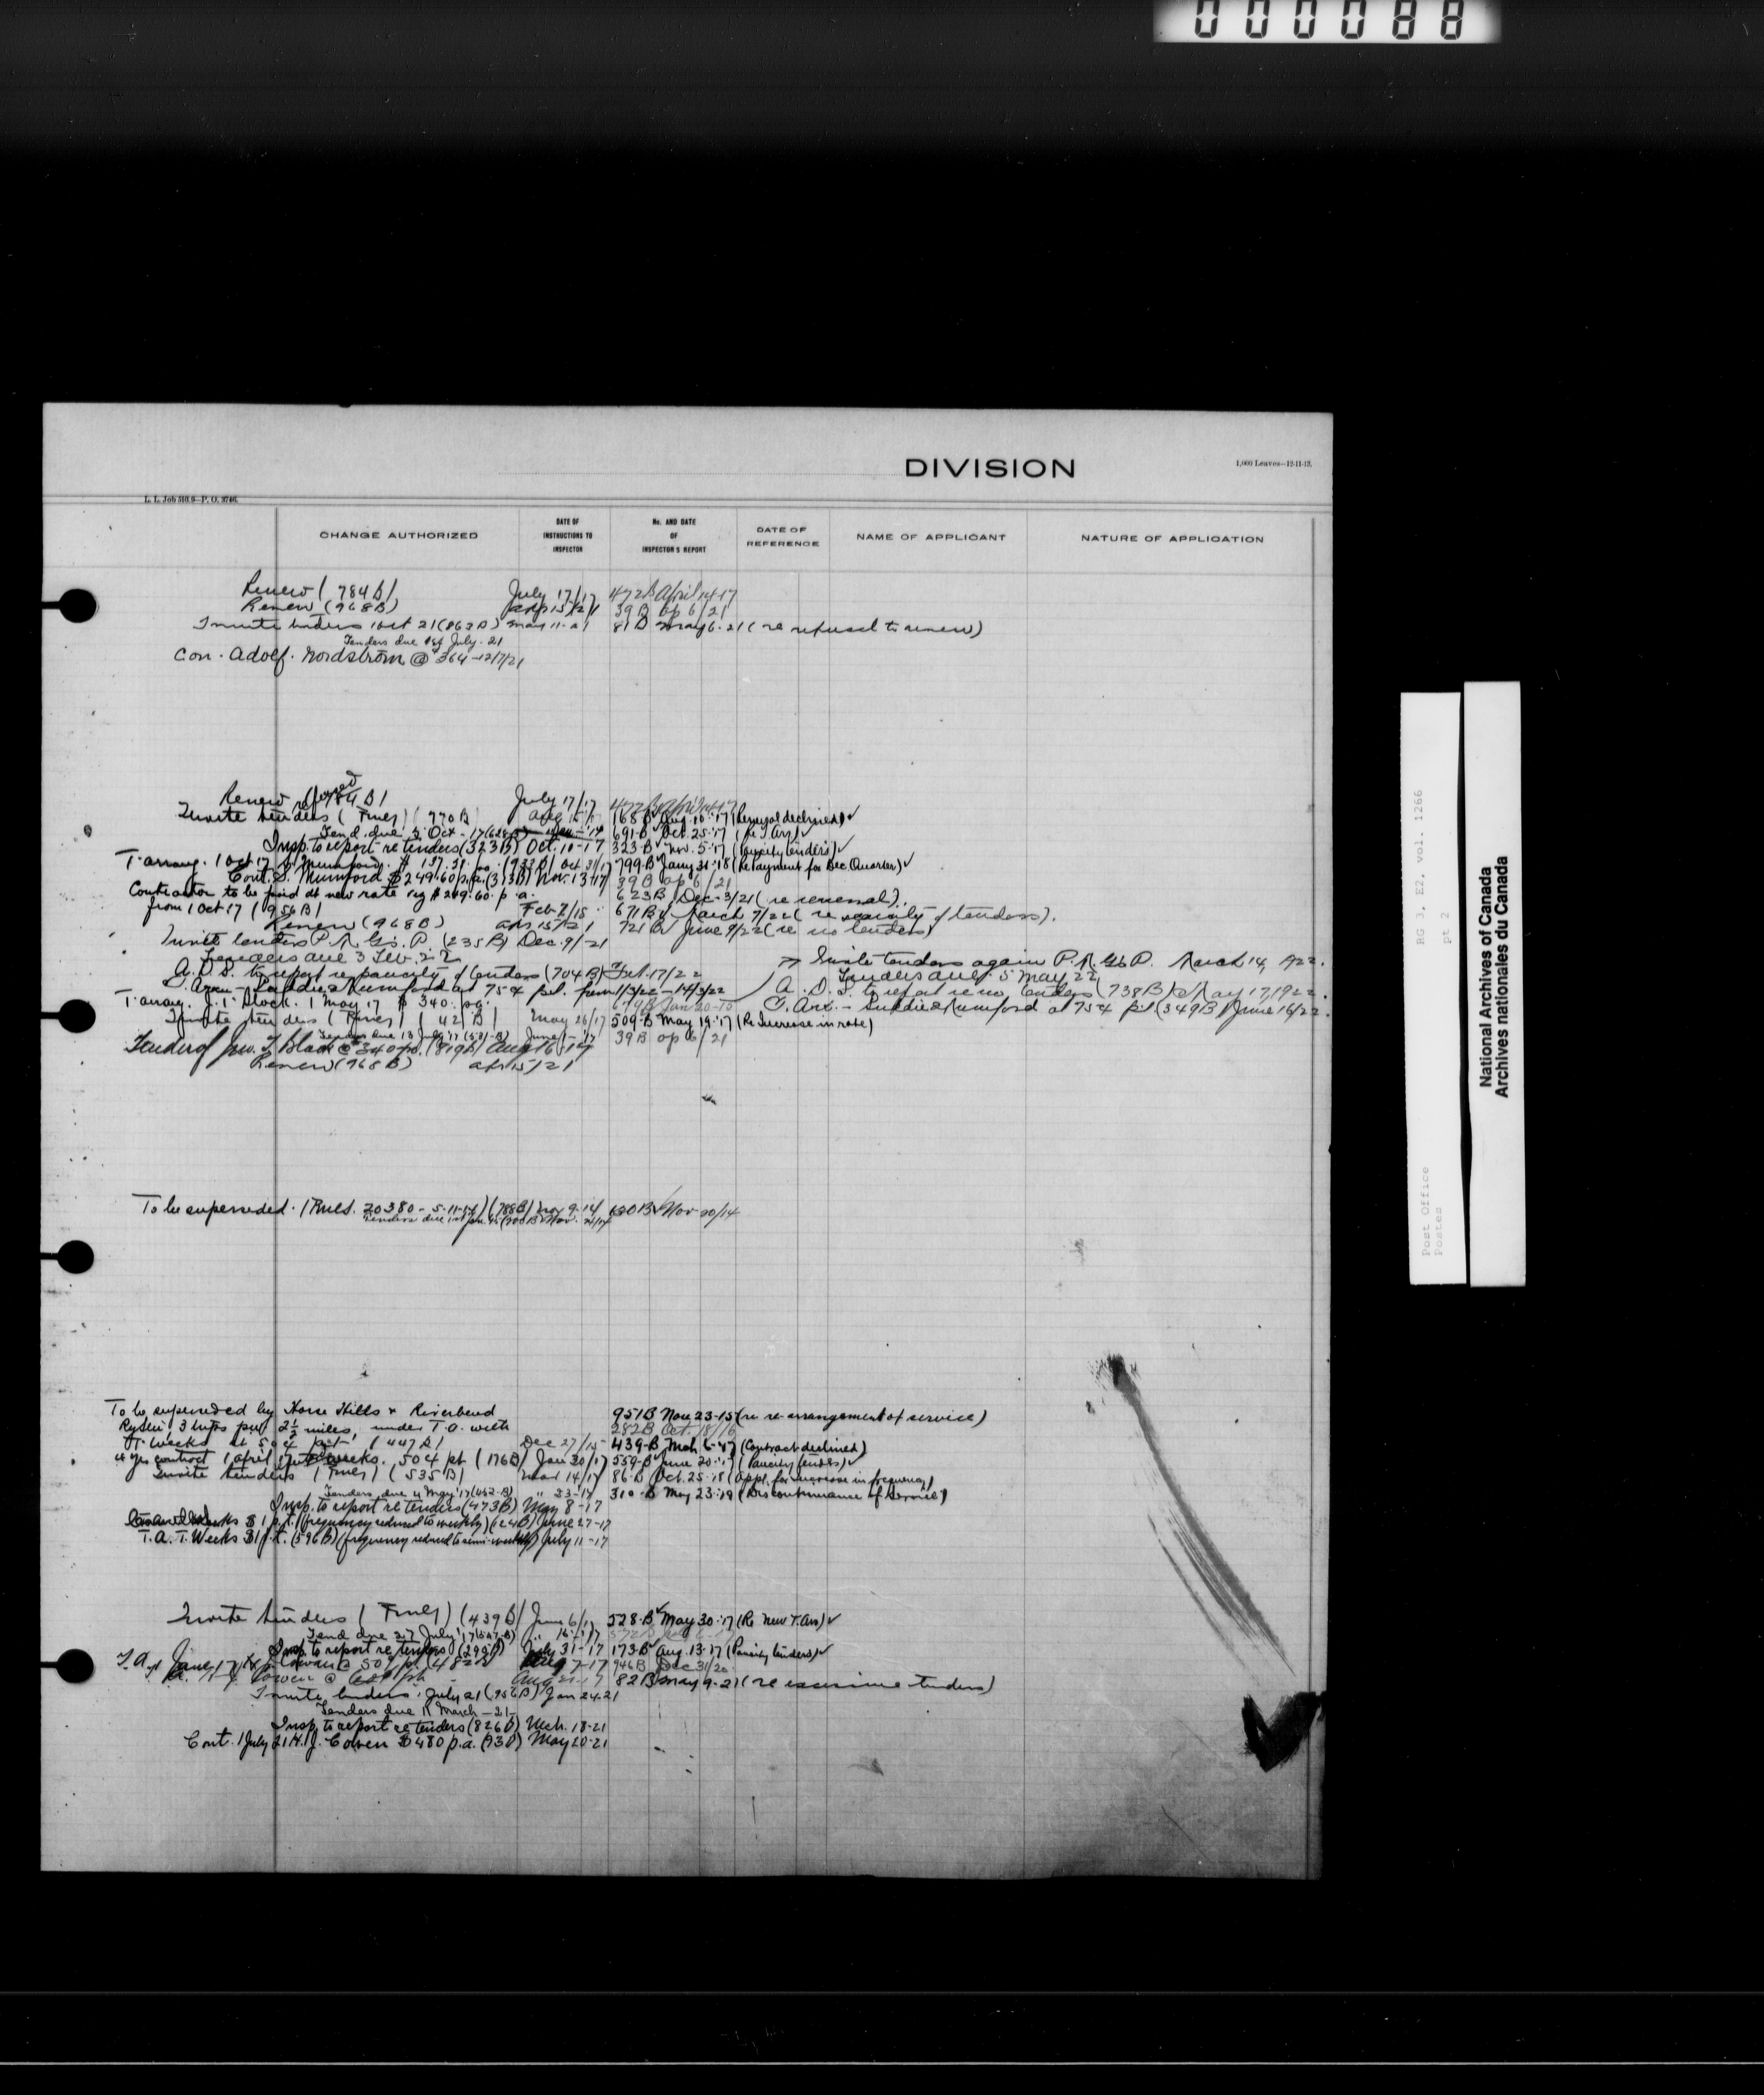 000088
DIVISION
1,000 Leaves—12-11-13.
L. L. Job 510.0—P. O. 3746.
CHANGE AUTHORIZED
DATE OF INSTRUCTIONS TO INSPECTOR
No. AND DATE OF INSPECTOR'S REPORT
DATE OF REFERENCE
NAME OF APPLICANT
NATURE OF APPLICATION
Renew (784B) July 17/17 472B April 14-17
Renew (968B) apr 15/21 39B ap 6/21
Invite tenders 1 Oct 21 (863B) May 11-21 81B May 6-21 (re refusal to renew)
Tenders due 1st July 21
Con. Adolf. Nordström @ 364 - 12/7/21
Renew (784B) July 17/17 472B April 14-17
Invite tenders (Four) (970B) Aug 168B Aug 16-17 (Renewal declined) ✓
Tend. due 5 Oct - 17 691-B Oct. 25-17 (re T. Arr) ✓
Insp. to report re tenders (323B) Oct. 10-17 323-B Nov. 5-17 (Paucity tenders) ✓
T. arrang. 1 Oct 17 Mumford. $137.31 (933B) Oct 31/17 799-B Jany 31-18 (Re Payment for Dec. Quarter) ✓
Cont. S. Mumford $249.60 p.a. (313B) Nov. 13-17 39B ap 6/21
Contractor to be paid at new rate $249.60 p.a. 623B Dec. 3/21 (re renewal).
from 1 Oct 17 (956B) Feb 7/18 671B March 7/22 (re paucity of tenders).
Renew (968B) apr 15/21 721B June 9/22 (re no tenders)
Invite tenders P. R. Gs. P. (235B) Dec. 9/21
Tenders due 3 Feb. 22
Invite tenders again P. R. Gs P. March 14, 1922.
A. D. S. to report re paucity of tenders (704B) Feb. 17/22
Tenders due 5 May 22
T. Arr. - Mumford at 75¢ from 1/3/22 - 14/3/22
A. D. S. to report re no tenders (738B) May 17, 1922.
T. arrang. J. T. Black. 1 May 17 $340. pa.
T. Arr. - Mumford at 75¢ (349B) June 16/22
Invite tenders (Four) (42B) May 26/17 509-B May 19-17 (Re Increase in rate)
Tenders due 13 July 17 June 17 39B ap 6/21
Tender of Jno. T. Black @ $340 pa. (819B) Aug 16-17
Renew (968B) apr 15/21
To be superseded. (Rules. 20380 - 5-11-14) (788B) Nov 9-14 630B Nov 20/14
Tenders due 1st Jan. 15 Nov. 21/14
To be superseded by Horse Hills & Riverbend 951B Nov 23-15 (re re-arrangement of service)
System, 3 trips per 2½ miles, under T. A. with 282B Oct. 18/16
T. Weeks at 50¢ pt. (447B) Dec 27/15 439-B Mch 6-17 (Contract declined)
4 yrs contract 1 April 17 T. Weeks. 50¢ pt (176B) Jan 30/17 559-B June 20-17 (Paucity tenders) ✓
Invite tenders (Four) (535B) Mar 14/17 86-B Oct. 25-18 (Appl. for increase in frequency)
Tenders due 4 May 17 (462-B) " 23-17 310-B May 23-19 (Discontinuance of Service)
Insp. to report re tenders (473B) May 8-17
Weeks $1 p.t. (frequency reduced to weekly) (24B) June 27-17
T. A. T. Weeks $1 p.t. (596B) (frequency reduced to semi-weekly) July 11-17
Invite tenders (Four) (439B) June 6/17 528-B May 30-17 (Re New T. Arr) ✓
Tend due 27 July 17 " 16-17
Insp. to report re tenders (295B) July 31-17 173-B Aug. 13-17 (Paucity tenders) ✓
T. A. Cowen @ 50¢ Aug 7-17 946B Dec 31/20
Cowen @ Aug 21-17 82B May 9-21 (re excessive tenders)
Invite tenders 1 July 21 (956B) Jan 24-21
Tenders due 11 March - 21
Insp. to report re tenders (826B) Mch. 18-21
Cont. 1 July 21 H. J. Cowen $480 p.a. (93B) May 20-21
RG 3, E2, vol. 1266
pt 2
Post Office
Postes
National Archives of Canada
Archives nationales du Canada